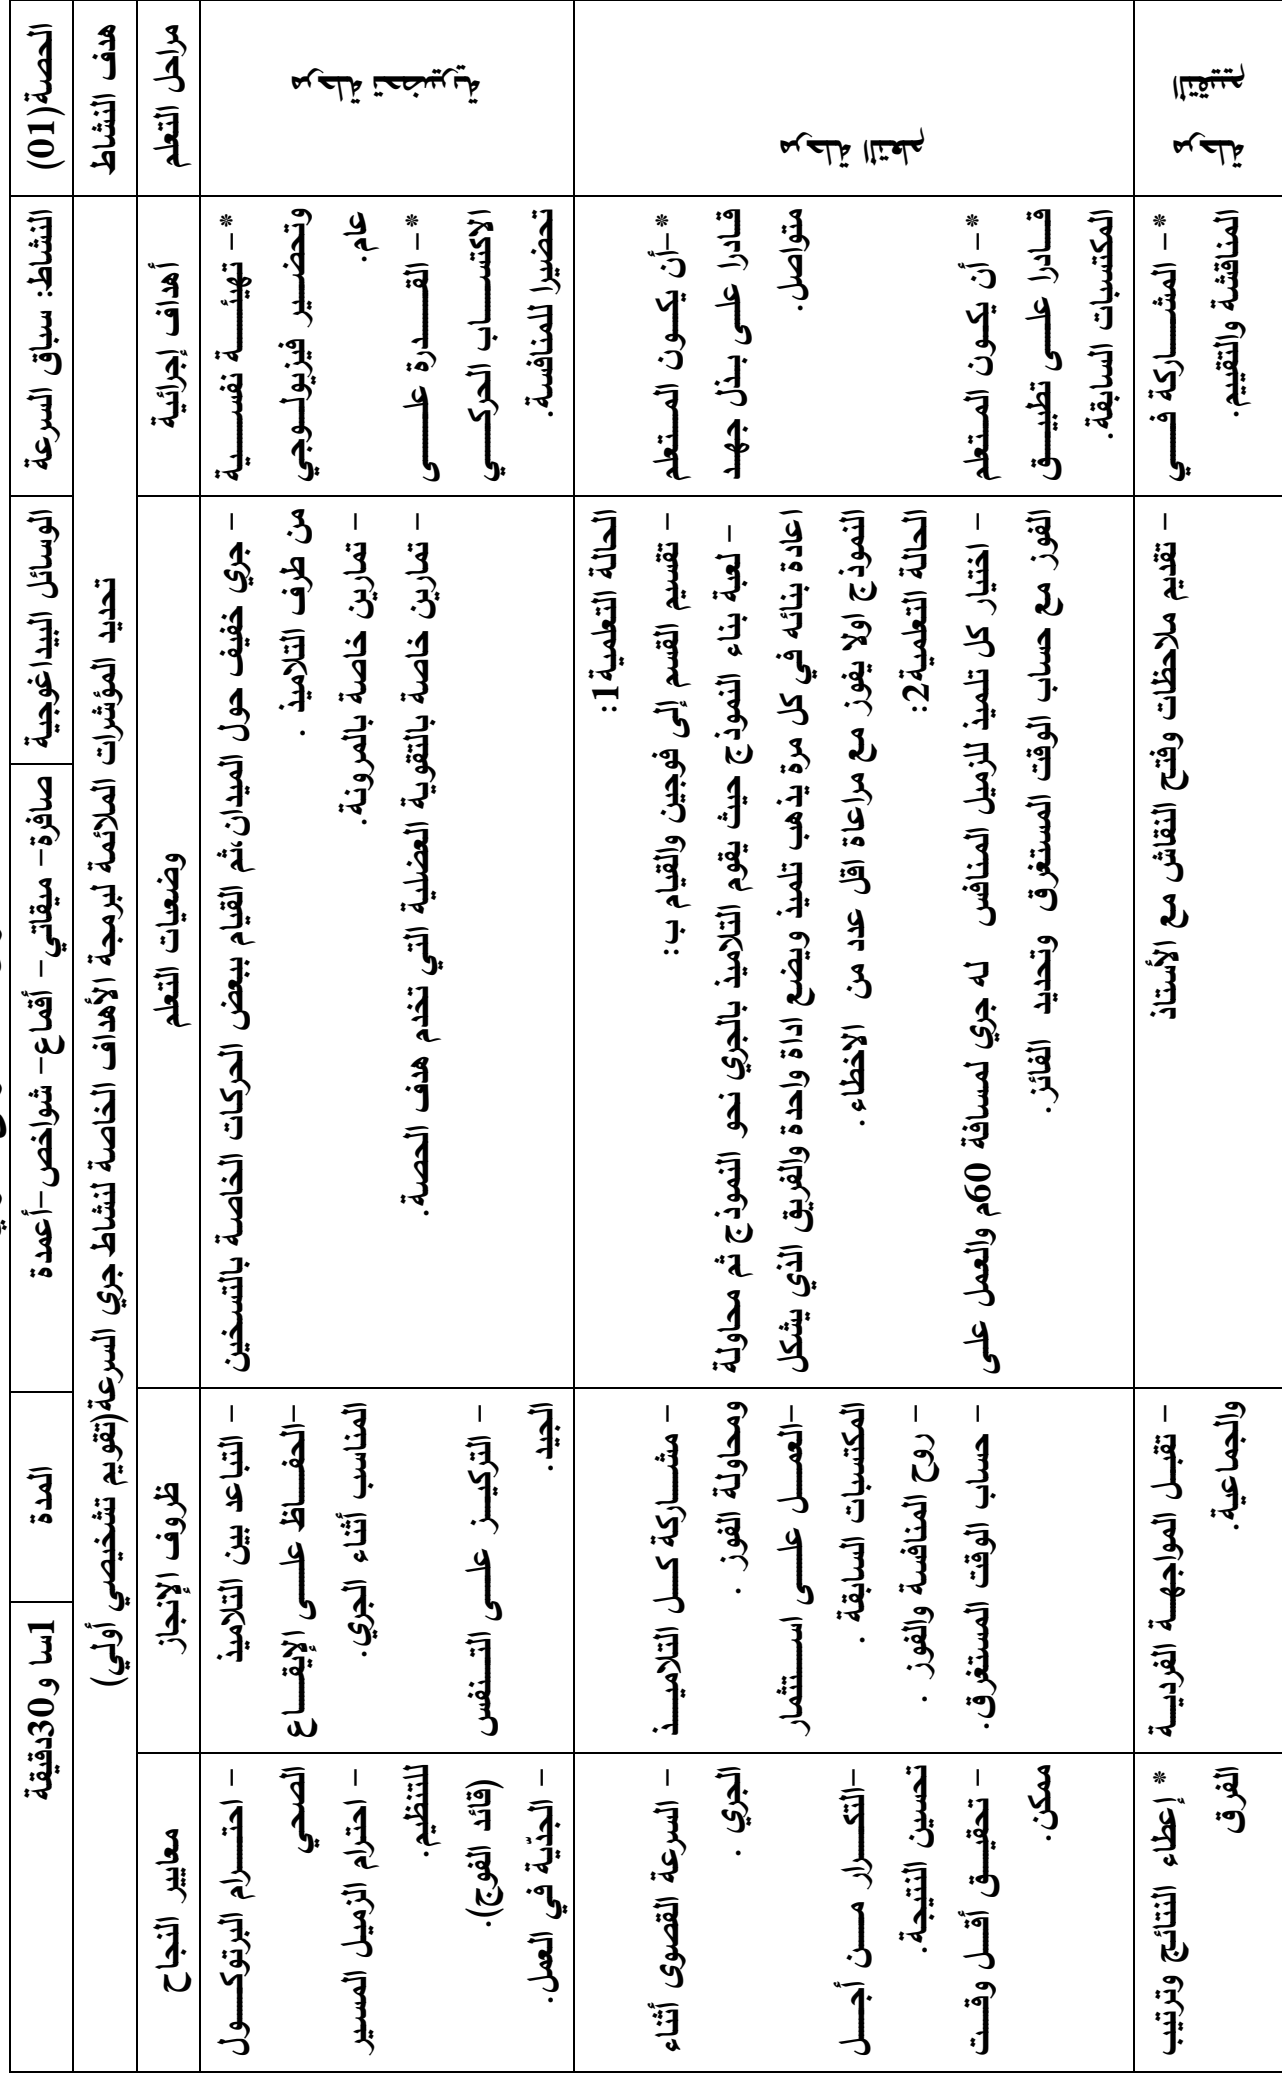 الحصة(01)
النشاط: سباق السرعة
الوسائل البيداغوجية
صافرة- ميقاتي- أقماع- شواخص-أعمدة
المدة
1سا و30دقيقة
هدف النشاط
تحديد المؤشرات الملائمة لبرمجة الأهداف الخاصة لنشاط جري السرعة(تقويم تشخيصي أولي)
مراحل التعلم
أهداف إجرائية
وضعيات التعلم
ظروف الإنجاز
معايير النجاح
مرحلة تحضيرية
*- تهيئة نفسية
وتحضير فيزيولوجي
عام.
*- القدرة على
الاكتساب الحركي
تحضيرا للمنافسة.
- جري خفيف حول الميدان،ثم القيام ببعض الحركات الخاصة بالتسخين
من طرف التلاميذ .
- تمارين خاصة بالمرونة.
- تمارين خاصة بالتقوية العضلية التي تخدم هدف الحصة.
- التباعد بين التلاميذ
-الحفاظ على الإيقاع
المناسب أثناء الجري.
- التركيز على التنفس
الجيد.
- احترام البرتوكول
الصحي
- احترام الزميل المسير
للتنظيم.
(قائد الفوج).
- الجدّية في العمل.
مرحلة التعلم
*-أن يكون المتعلم
قادرا على بذل جهد
متواصل.
*- أن يكون المتعلم
قادرا على تطبيق
المكتسبات السابقة.
الحالة التعلمية1:
- تقسيم القسم إلى فوجين والقيام ب:
- لعبة بناء النموذج حيث يقوم التلاميذ بالجري نحو النموذج ثم محاولة
اعادة بنائه في كل مرة يذهب تلميذ ويضع اداة واحدة والفريق الذي يشكل
النموذج اولا يفوز مع مراعاة اقل عدد من الاخطاء .
الحالة التعلمية2:
- اختيار كل تلميذ للزميل المنافس له جري لمسافة 60م والعمل على
الفوز مع حساب الوقت المستغرق وتحديد الفائز.
- مشاركة كل التلاميذ
ومحاولة الفوز .
-العمل على استثمار
المكتسبات السابقة .
- روح المنافسة والفوز .
- حساب الوقت المستغرق.
- السرعة القصوى أثناء
الجري .
-التكرار من أجل
تحسين النتيجة.
- تحقيق أقل وقت
ممكن.
مرحلة
التقييم
*- المشاركة في
المناقشة والتقييم.
- تقديم ملاحظات وفتح النقاش مع الأستاذ
- تقبل المواجهة الفردية
والجماعية.
* إعطاء النتائج وترتيب
الفرق